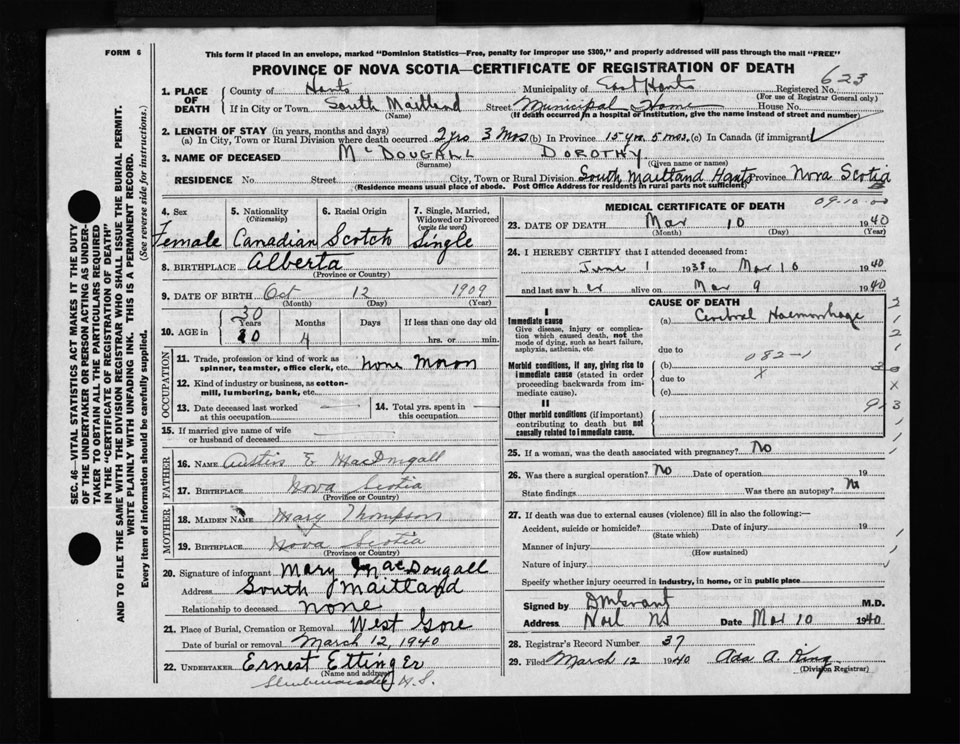 FORM 6
This form if placed in an envelope, marked "Dominion Statistics—Free, penalty for improper use $300," and properly addressed will pass through the mail "FREE"
PROVINCE OF NOVA SCOTIA—CERTIFICATE OF REGISTRATION OF DEATH
623
1. PLACE OF DEATH
County of Hants Municipality of East Hants Registered No.
(For use of Registrar General only)
If in City or Town South Maitland Street Municipal Home House No.
(Name) (If death occurred in a hospital or institution, give the name instead of street and number)
2. LENGTH OF STAY (in years, months and days)
(a) In City, Town or Rural Division where death occurred 2 yrs 3 Mos (b) In Province 15 yrs. 5 mos. (c) In Canada (if immigrant)
3. NAME OF DECEASED McDOUGALL DOROTHY
(Surname) (Given name or names)
RESIDENCE No. Street City, Town or Rural Division South Maitland Hants Province Nova Scotia
(Residence means usual place of abode. Post Office Address for residents in rural parts not sufficient)
4. Sex
Female
5. Nationality
(Citizenship)
Canadian
6. Racial Origin
Scotch
7. Single, Married, Widowed or Divorced
(write the word)
Single
8. BIRTHPLACE Alberta
(Province or Country)
9. DATE OF BIRTH Oct 12 1909
(Month) (Day) (Year)
10. AGE in
30
Years Months Days If less than one day old
4 hrs. or min.
OCCUPATION
11. Trade, profession or kind of work as spinner, teamster, office clerk, etc. none Moron
12. Kind of industry or business, as cotton-mill, lumbering, bank, etc.
13. Date deceased last worked at this occupation
14. Total yrs. spent in this occupation
15. If married give name of wife or husband of deceased
FATHER
16. NAME Austin E MacDougall
17. BIRTHPLACE Nova Scotia
(Province or Country)
MOTHER
18. MAIDEN NAME Mary Thompson
19. BIRTHPLACE Nova Scotia
(Province or Country)
20. Signature of informant Mary MacDougall
Address South Maitland
Relationship to deceased none
21. Place of Burial, Cremation or Removal West Gore
Date of burial or removal March 12, 1940
22. UNDERTAKER Ernest Ettinger
(Name and address)
N.S.
MEDICAL CERTIFICATE OF DEATH
09-10-00
23. DATE OF DEATH Mar 10 1940
(Month) (Day) (Year)
24. I HEREBY CERTIFY that I attended deceased from:
June 1 1938 to Mar 10 1940
and last saw her alive on Mar 9 1940
CAUSE OF DEATH
I
Immediate cause
Give disease, injury or complication which caused death, not the mode of dying, such as heart failure, asphyxia, asthenia, etc.
(a) Cerebral Haemorrhage
due to
082-1
Morbid conditions, if any, giving rise to immediate cause (stated in order proceeding backwards from immediate cause).
(b)
due to
(c)
II
Other morbid conditions (if important) contributing to death but not causally related to immediate cause.
25. If a woman, was the death associated with pregnancy? No
26. Was there a surgical operation? No Date of operation 19
State findings Was there an autopsy? No
27. If death was due to external causes (violence) fill in also the following:—
Accident, suicide or homicide? Date of injury 19
(State which)
Manner of injury
(How sustained)
Nature of injury
Specify whether injury occurred in industry, in home, or in public place
Signed by M.D.
Address Noel NS Date Mar 10 1940
28. Registrar's Record Number 37
29. Filed March 12 1940 Ada A. King
(Division Registrar)
SEC. 46—VITAL STATISTICS ACT MAKES IT THE DUTY
OF THE UNDERTAKER OR PERSON ACTING AS UNDER-
TAKER TO OBTAIN ALL THE PARTICULARS REQUIRED
IN THE "CERTIFICATE OF REGISTRATION OF DEATH"
AND TO FILE THE SAME WITH THE DIVISION REGISTRAR WHO SHALL ISSUE THE BURIAL PERMIT.
WRITE PLAINLY WITH UNFADING INK. THIS IS A PERMANENT RECORD.
Every item of information should be carefully supplied. (See reverse side for instructions.)